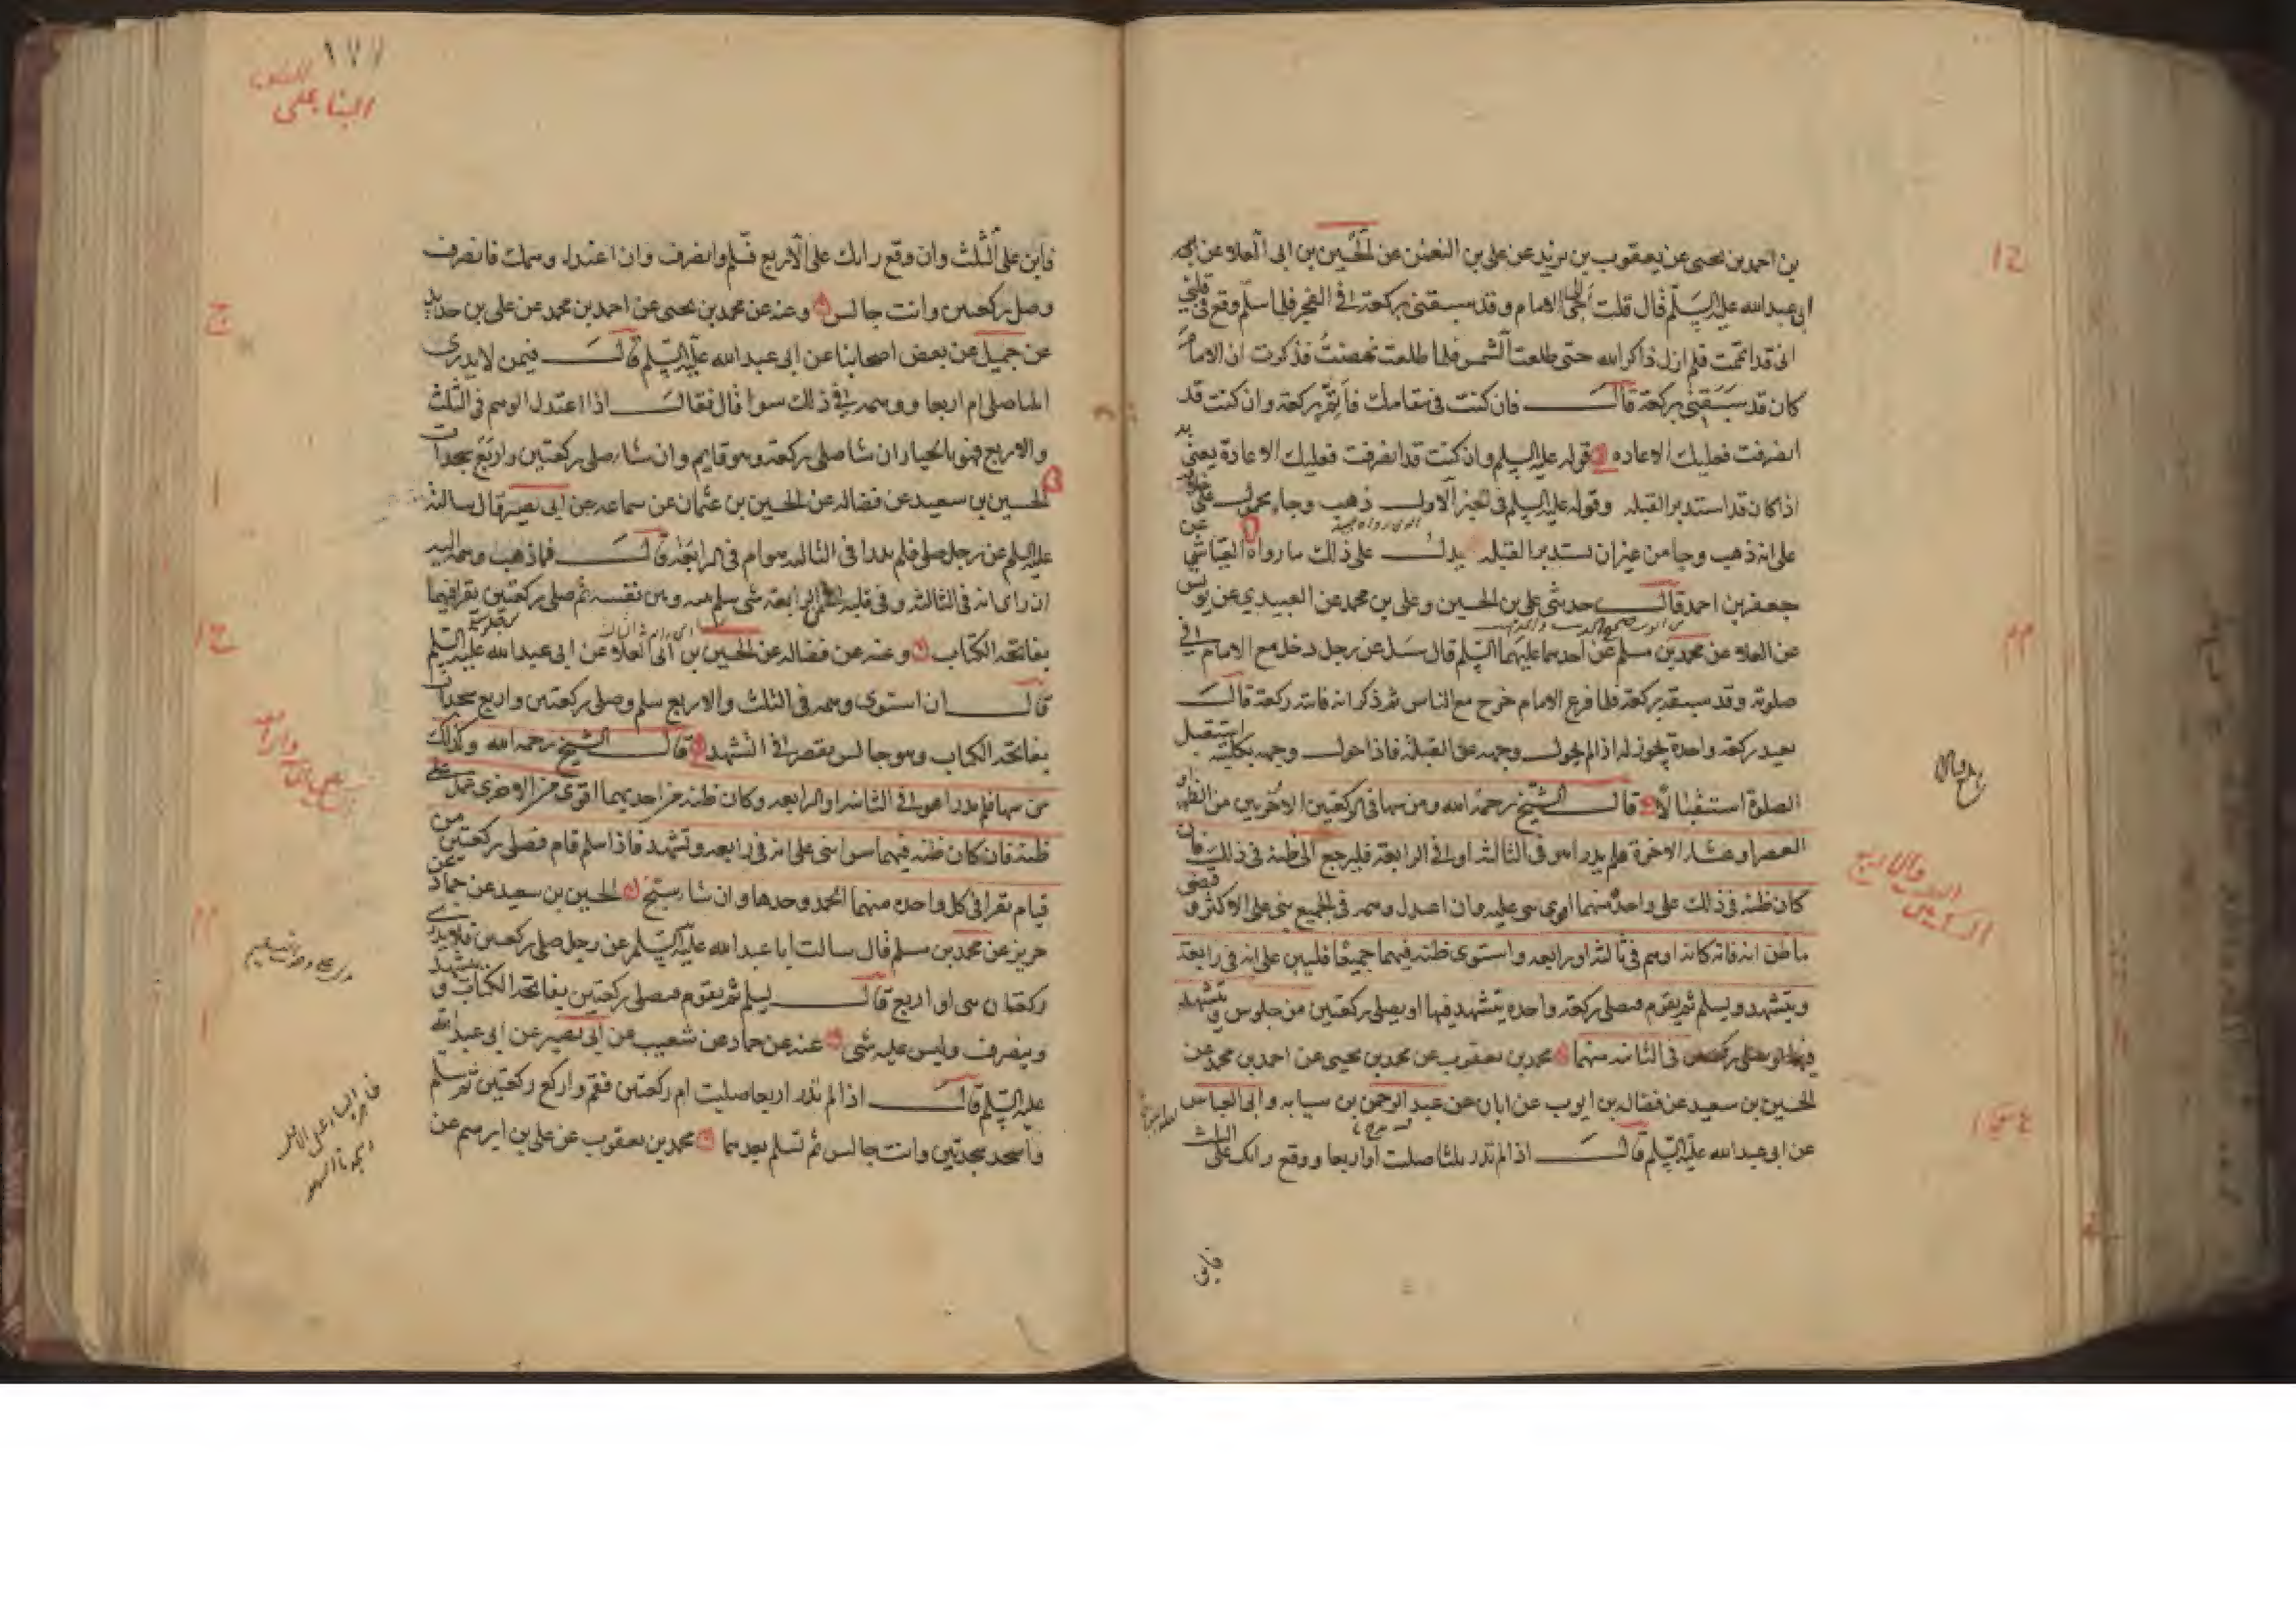 بن احمد بن يحيى عن يعقوب بن يزيد عن على بن النعمن عن الحسين بن ابى العلاء عن
ابى عبدالله عليه السلم قال قلت اجئ الامام وقد سبقنى بركعة فى الفجر فلما سلم وقع فى قلبى
انى قد اتممت فلم ازل ذاكر الله حتى طلعت الشمس فلما طلعت نهضت فذكرت ان الامام
كان قد سبقنى بركعة قال فان كنت فى مقامك فاتم بركعة وان كنت قد
انصرفت فعليك الاعاده قوله عليه السلم وان كنت قد انصرفت فعليك الاعادة يعنى به
اذا كان قد استدبر القبله وقوله عليه السلم فى الخبر الاول ذهب وجاء محمول على
على انه ذهب وجا من غير ان يستدبر القبله يدل على ذلك ما رواه العياشى عن
جعفر بن احمد قال حدثنى على بن الحسين وعلى بن محمد عن العبيدى عن يونس
عن العلاء عن محمد بن مسلم عن احدهما عليهما السلم قال سئل عن رجل دخل مع الامام فى
صلوته وقد سبقه بركعة فلما فرغ الامام خرج مع الناس ثم ذكر انه فاتته ركعة قال
يعيد ركعة واحدة يجوز له اذا لم يحول وجهه عن القبلة فاذا حول وجهه بكليته استقبل
الصلوة استقبالا قال الشيخ رحمه الله ومن سها فى الركعتين الاخريين من الظهر او
العصر او عشاء الاخرة فلم يدر اهو فى الثالثه او فى الرابعة فليرجع الى ظنه فى ذلك فان
كان ظنه فى ذلك على واحدة منهما اقوى بنى عليه وان اعتدل وهمه فى الجميع بنى على الاكثر وقضى
ما ظن انه فاته كانه اوهم فى ثالثه او رابعه واستوى ظنه فيهما جميعا فليبن على انه فى رابعة
ويتشهد ويسلم ثم يقوم فيصلى ركعة واحده يتشهد فيها او يصلى ركعتين من جلوس ويتشهد
فى الثانيه منهما محمد بن يعقوب عن محمد بن يحيى عن احمد بن محمد عن
الحسين بن سعيد عن فضاله بن ايوب عن ابان عن عبد الرحمن بن سيابه وابى العباس
عن ابى عبدالله عليه السلم قال اذا لم تدر ثلثا صليت او اربعا ووقع رايك على الثلث
فابن
١٧٧
البنا على
فابن على الثلث وان وقع رايك على الاربع فسلم وانصرف وان اعتدل وهمك فانصرف
وصل ركعتين وانت جالس وعنه عن محمد بن يحيى عن احمد بن محمد عن على بن حديد
عن جميل عن بعض اصحابنا عن ابى عبدالله عليه السلم قال فيمن لا يدرى
اثلثا صلى ام اربعا ووهمه فى ذلك سوا قال فقال اذا اعتدل الوهم فى الثلث
والاربع فهو بالخيار ان شا صلى ركعة وهو قايم وان شاء صلى ركعتين واربع سجدات
الحسين بن سعيد عن فضاله عن الحسين بن عثمان عن سماعه عن ابى بصير قال سالته
عليه السلم عن رجل صلى فلم يدر افى الثالثه هو ام فى الرابعة قال فما ذهب وهمه اليه
ان راى انه فى الثالثه وفى قلبه من الرابعة شى سلم بينه وبين نفسه ثم صلى ركعتين يقرا فيهما
بفاتحة الكتاب وعنه عن فضاله عن الحسين بن ابى العلاء عن ابى عبدالله عليه السلم
قال ان استوى وهمه فى الثلث والاربع سلم وصلى ركعتين واربع سجدات
بفاتحة الكتاب وهو جالس يقصر فى التشهد قال الشيخ رحمه الله وكذلك
من سها فلم يدر اهو فى الثانيه او الرابعه وكان ظنه فى احديهما اقوى من الاخرى عمل على
ظنه فان كان ظنه فيهما سوا بنى على انه فى رابعه وتشهد فاذا سلم قام فصلى ركعتين من
قيام يقرا فى كل واحده منهما الحمد وحدها وان شاء سبح الحسين بن سعيد عن حماد عن
حريز عن محمد بن مسلم قال سالت ابا عبدالله عليه السلم عن رجل صلى ركعتين فلا يدرى
ركعتان هى او اربع قال يسلم ثم يقوم فيصلى ركعتين بفاتحة الكتاب ويتشهد
وينصرف وليس عليه شى عنه عن حماد عن شعيب عن ابى بصير عن ابى عبدالله
عليه السلم قال اذا لم تدر اربعا صليت ام ركعتين فقم واركع ركعتين ثم سلم
واسجد سجدتين وانت جالس ثم تسلم بعدهما محمد بن يعقوب عن على بن ابرهيم عن